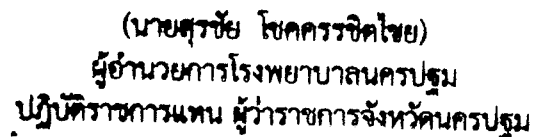 (นายสุรชัย โชคครรชิตไชย)
ผู้อำนวยการโรงพยาบาลนครปฐม
ปฏิบัติราชการแทน ผู้ว่าราชการจังหวัดนครปฐม